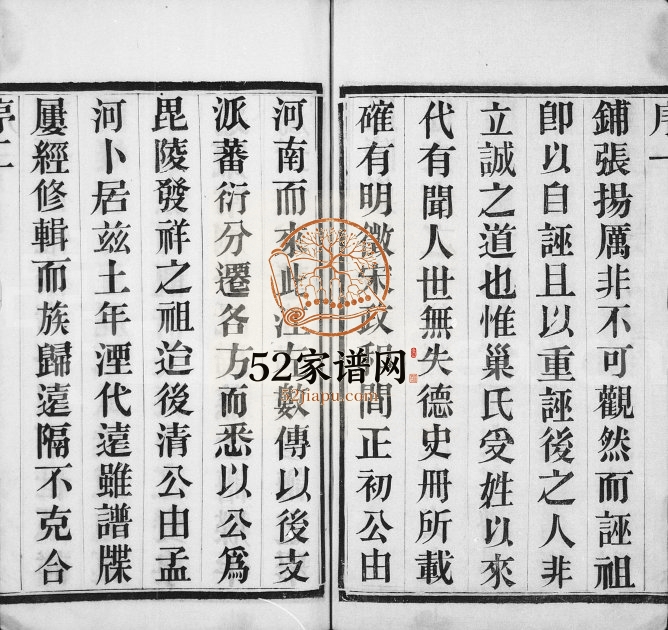 鋪張揚厲非不可觀然而誣祖
卽以自誣且以重誣後之人非
立誠之道也惟巢氏受姓以來
代有聞人世無失德史冊所載
確有明徵宋政和間正初公由
河南而來此江左數傳以後支
派蕃衍分遷各方而悉以公爲
毘陵發祥之祖迨後清公由孟
河卜居茲土年湮代遠雖譜牒
屢經修輯而族歸遠隔不克合
序二
52家谱网
52jiapu.com